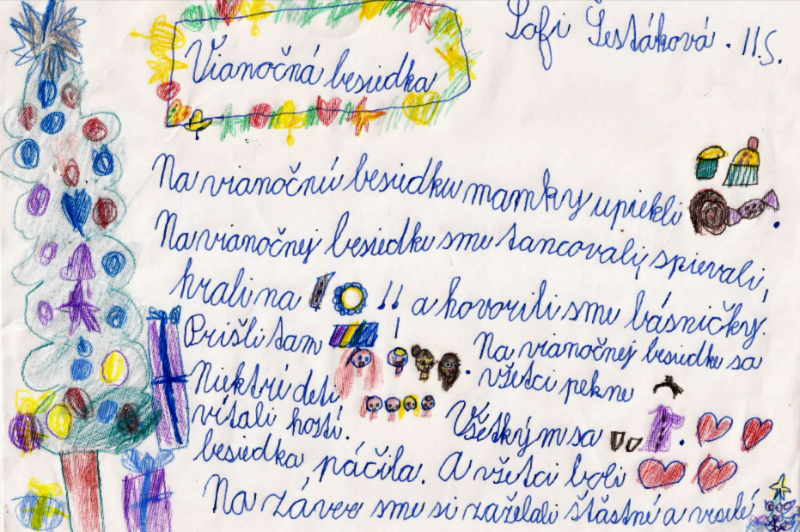 Sofi Šestáková. II.S.
Vianočná besiedka
Na vianočnú besiedku mamky upiekli .
Na vianočnej besiedke sme tancovali, spievali,
hrali na !! a hovorili sme básničky.
Prišli tam .
Na vianočnej besiedke sa
všetci pekne
Niektrí deti
vítali hostí.
Všetkým sa .
besiedka páčila. A všetci boli
Na záver sme si zaželali štastné a veselé